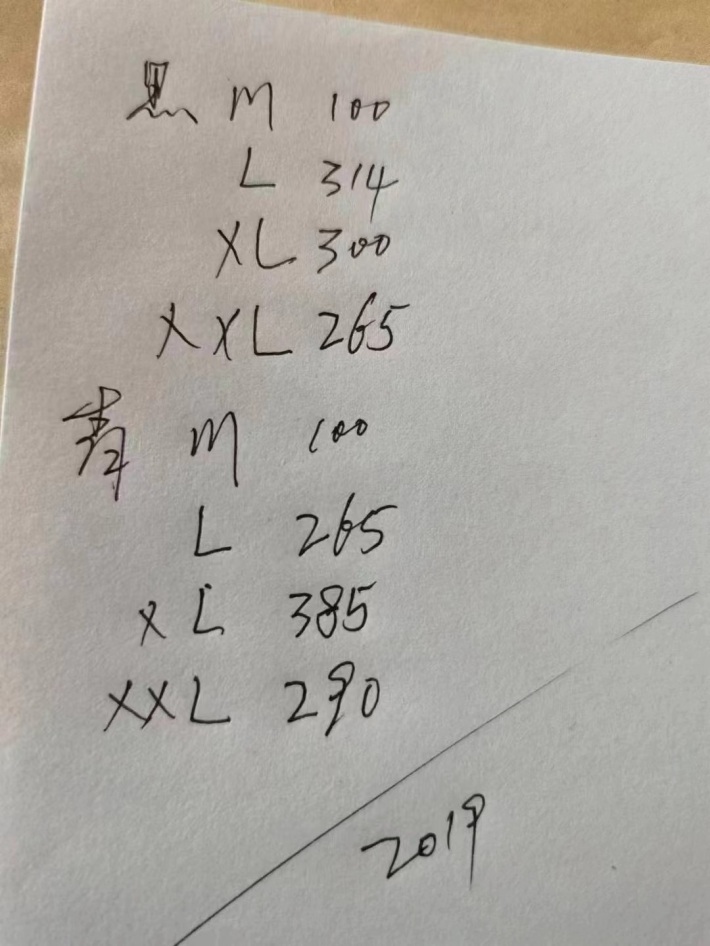 黑 M 100
L 314
XL 300
XXL 265
青 M 100
L 265
XL 385
XXL 290
2019